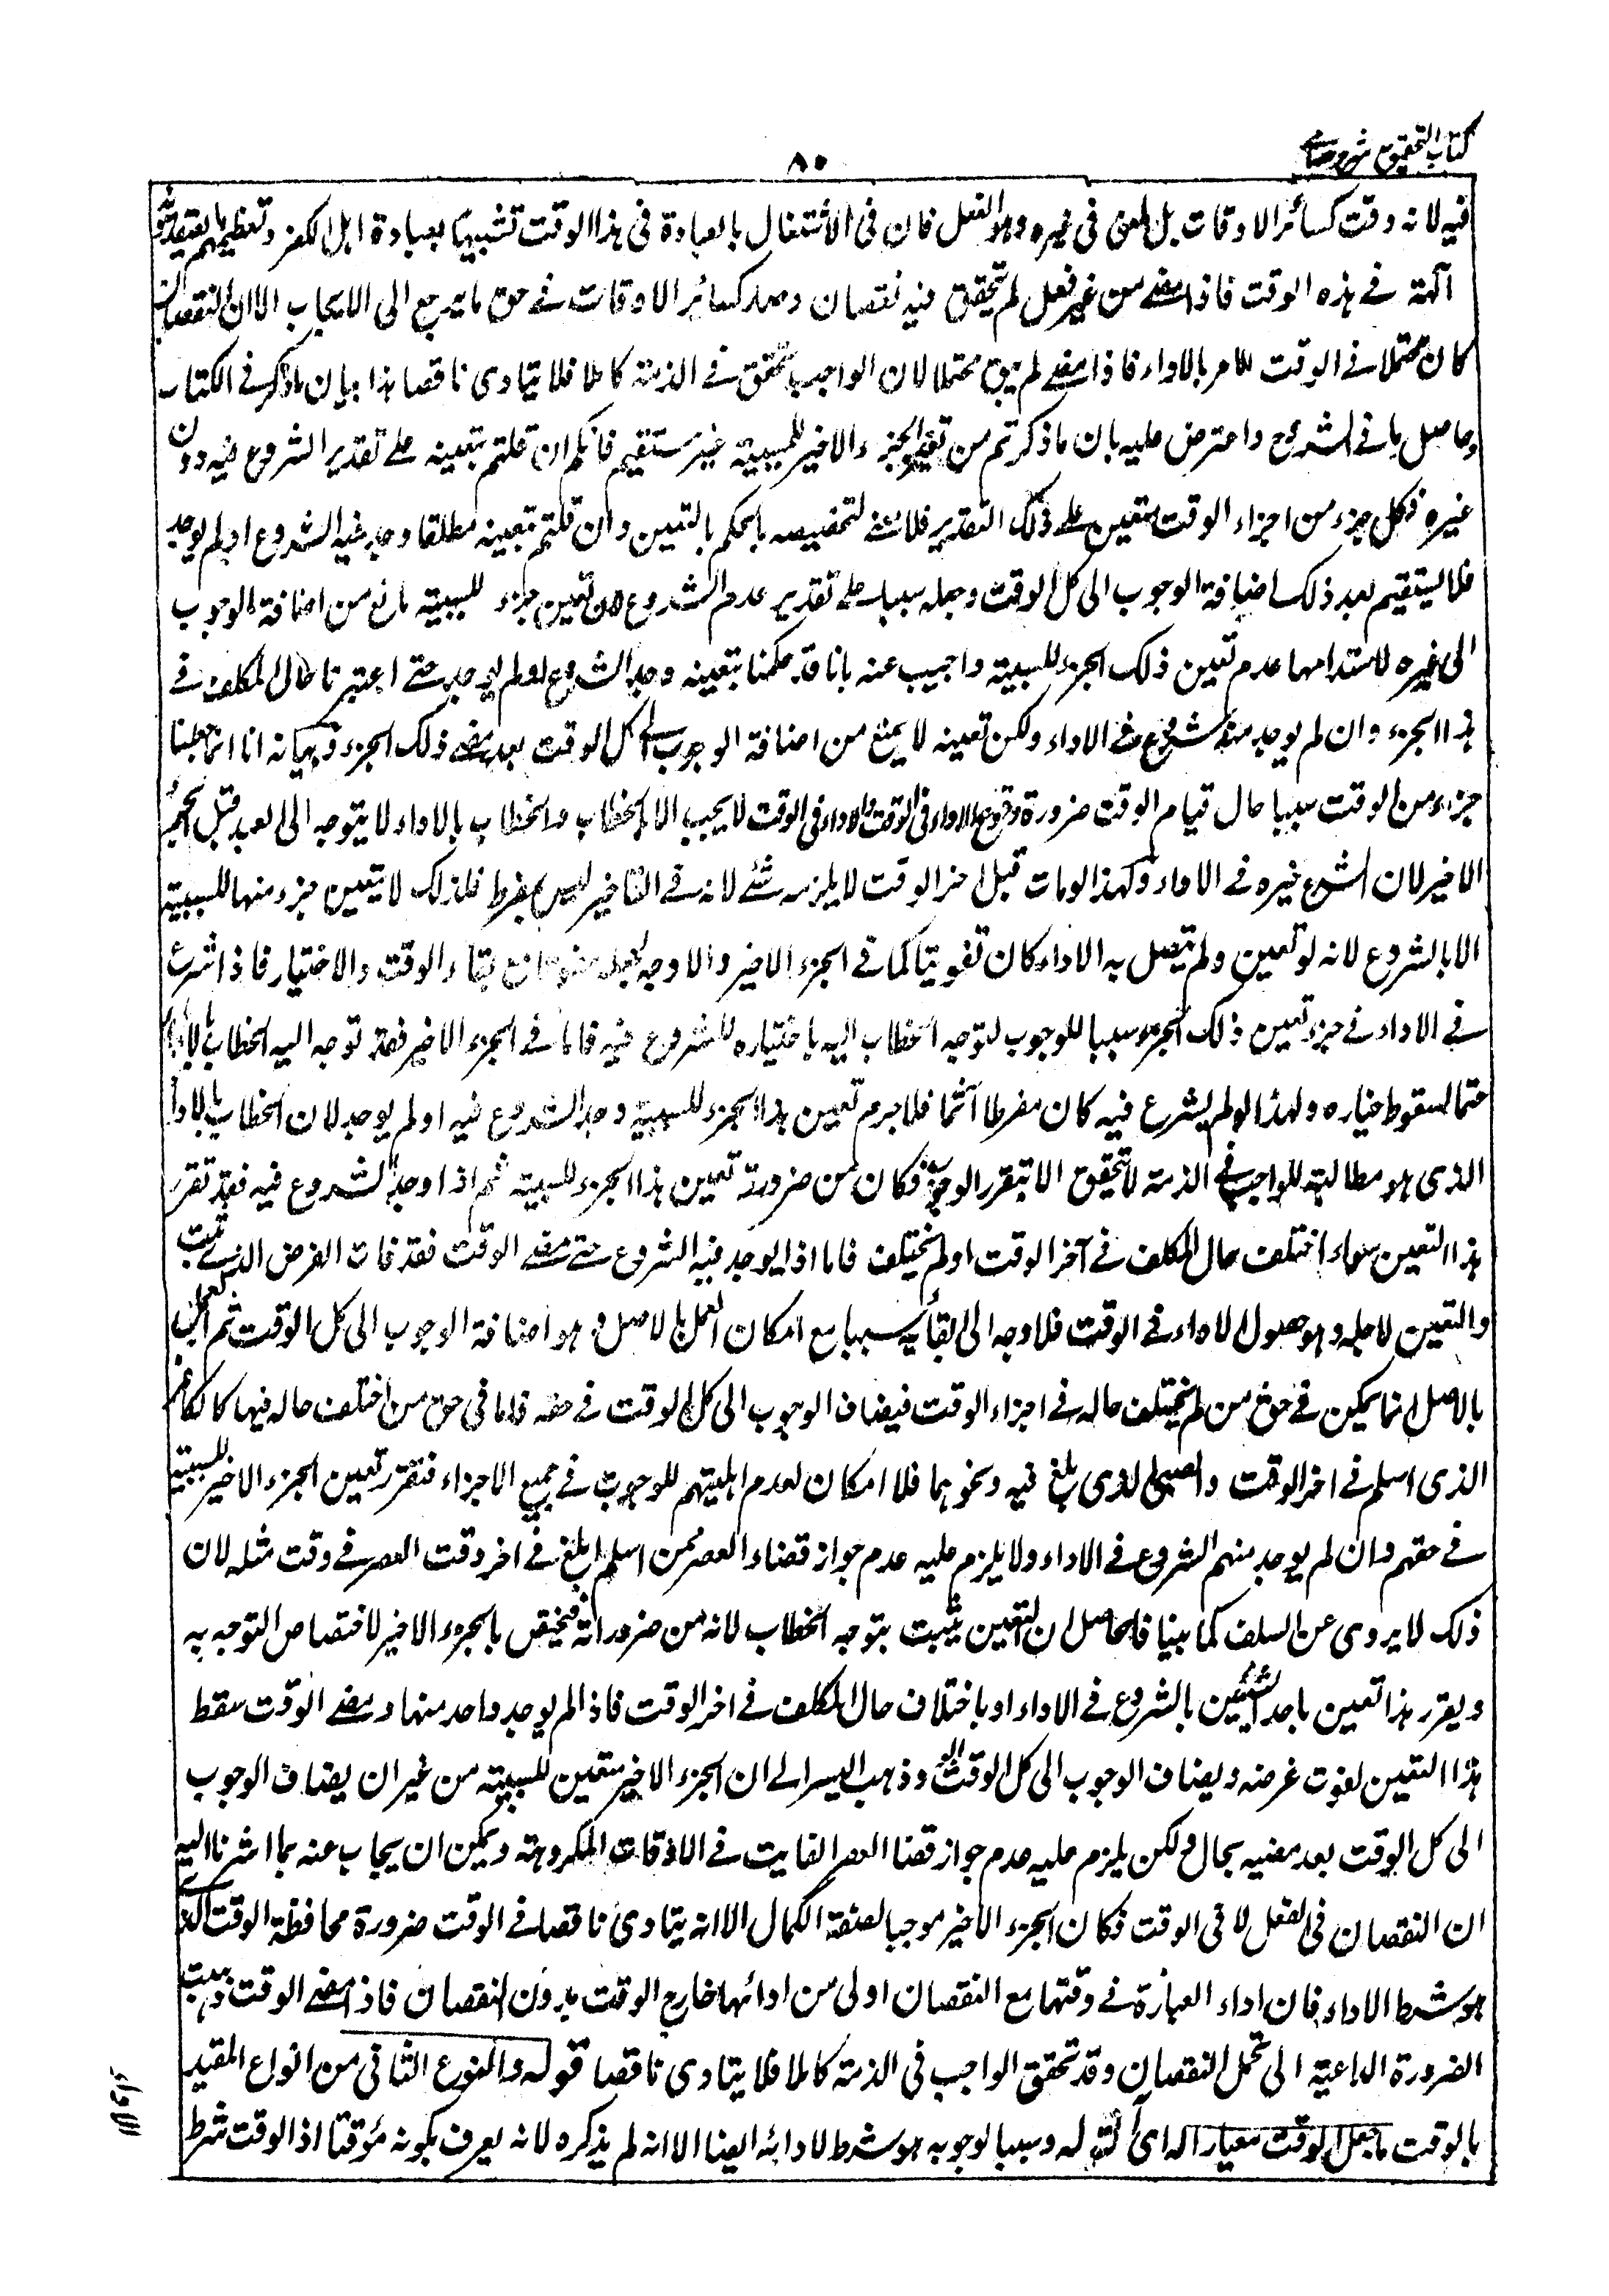 كتاب التحقيق شرح حسامي
٨٠
فيه لانه وقت كسائر الاوقات بل لمعنى فى غيره وهو الفعل فان فى الاشتغال بالعبادة فى هذا الوقت تشبيها بعبادة اهل الكفر وتعظيمهم
آلهة فى هذه الوقت فاذا مضى من غير فعل لم يتحقق فيه نقصان وصار كسائر الاوقات فى حق ما يرجع الى الايجاب الا ان النقصان
كان محتملا فى الوقت للامر بالاداء فاذا مضى لم يبق محتملا لان الواجب تحقق فى الذمة كاملا فلا يتادى ناقصا هذا بيان ما ذكر فى الكتاب
وحاصل ما فى الشروح واعترض عليه بان ما ذكرتم من تعين الجزء الاخير للسببية غير مستقيم فانكم ان قلتم بتعينه على تقدير الشروع فيه دون
غيره فكل جزء من اجزاء الوقت متعين على ذلك التقدير فلا معنى لتخصيصه بالحكم بالتعين وان قلتم بتعينه مطلقا وجد فيه الشروع اولم يوجد
فلا يستقيم بعد ذلك اضافة الوجوب الى كل الوقت وجعله سببا على تقدير عدم الشروع لان تعين جزء للسببية مانع من اضافة الوجوب
الى غيره لاستدامها عدم تعين ذلك الجزء للسببية واجيب عنه بانا قد حكمنا بتعينه وجد الشروع اولم يوجد حتى اعتبرنا حال المكلف فى
هذا الجزء وان لم يوجد منه شروع فى الاداء ولكن تعينه لا يمنع من اضافة الوجوب الى كل الوقت بعد مضى ذلك الجزء وبيانه انا انما جعلنا
جزء من الوقت سببا حال قيام الوقت ضرورة وقوع الاداء فى الوقت والاداء فى الوقت لا يجب الا بالخطاب والخطاب بالاداء لا يتوجه الى العبد قبل الجزء
الاخير لان الشرع خيره فى الاداء ولهذا لو مات قبل اخر الوقت لا يلزمه شئ لانه فى التاخير ليس بمفرط فلذلك لا يتعين جزء منها للسببية
الا بالشروع لانه لو تعين ولم يتصل به الاداء كان تفويتا كما فى الجزء الاخير والا وجه لجعله مفوتا مع بقاء الوقت والاختيار فاذا شرع
فى الاداء فى جزء تعين ذلك الجزء سببا للوجوب لتوجه الخطاب اليه باختياره للشروع فيه فاما فى الجزء الاخير فقد توجه اليه الخطاب بالاداء
حتما لسقوط خياره ولهذا لو لم يشرع فيه كان مفرطا آثما فلا جرم تعين هذا الجزء للسببية وجد الشروع فيه اولم يوجد لان الخطاب بالاداء
الذى هو مطالبة للواجب فى الذمة لا يتحقق الا بتقرر الوجوب فكان من ضرورته تعين هذا الجزء للسببية ثم اذا وجد الشروع فيه فقد تقرر
هذا التعين سواء اختلف حال المكلف فى آخر الوقت اولم يختلف فاما اذا لم يوجد فيه الشروع حتى مضى الوقت فقد فات الغرض الذى ثبت
والتعين لاجله وهو حصول الاداء فى الوقت فلا وجه الى بقائه سببا مع امكان العمل بالاصل وهو اضافة الوجوب الى كل الوقت ثم العمل
بالاصل انما يمكن فى حق من لم يختلف حاله فى اجزاء الوقت فيضاف الوجوب الى كل الوقت فى حقه فاما فى حق من اختلف حاله فيها كالكافر
الذى اسلم فى اخر الوقت والصبى الذى بلغ فيه ونحوهما فلا امكان لعدم اهليتهم للوجوب فى جميع الاجزاء فتقرر تعين الجزء الاخير للسببية
فى حقهم وان لم يوجد منهم الشروع فى الاداء ولا يلزم عليه عدم جواز قضاء العصر ممن اسلم او بلغ فى اخر وقت العصر فى وقت مثله لان
ذلك لا يروى عن السلف كما بينا فالحاصل ان التعين يثبت بتوجه الخطاب لانه من ضروراته فيختص بالجزء الاخير لاختصاص التوجه به
ويقرر هذا تعين باحد الشيئين بالشروع فى الاداء او باختلاف حال المكلف فى اخر الوقت فاذا لم يوجد واحد منها ومضى الوقت سقط
هذا التعين لفوت غرضه ويضاف الوجوب الى كل الوقت وذهب ابو اليسر الى ان الجزء الاخير متعين للسببية من غير ان يضاف الوجوب
الى كل الوقت بعد مضيه بحال ولكن يلزم عليه عدم جواز قضا العصر الفايت فى الاوقات المكروهة ويمكن ان يجاب عنه بما اشرنا اليه
ان النقصان فى الفعل لا فى الوقت فكان الجزء الاخير موجبا لصفة الكمال الا انه يتادى ناقصا فى الوقت ضرورة محافظة الوقت الذى
هو شرط الاداء فان اداء العبادة فى وقتها مع النقصان اولى من ادائها خارج الوقت بدون النقصان فاذا مضى الوقت ذهبت
الضرورة الداعية الى تحمل النقصان وقد تحقق الواجب فى الذمة كاملا فلا يتادى ناقصا قوله والنوع الثانى من انواع المقيد
بالوقت ما جعل الوقت معيارا له اى لقوله وسببا لوجوبه هو شرط لادائه ايضا الا انه لم يذكره لانه يعرف بكونه مؤقتا اذ الوقت شرط
للاداء